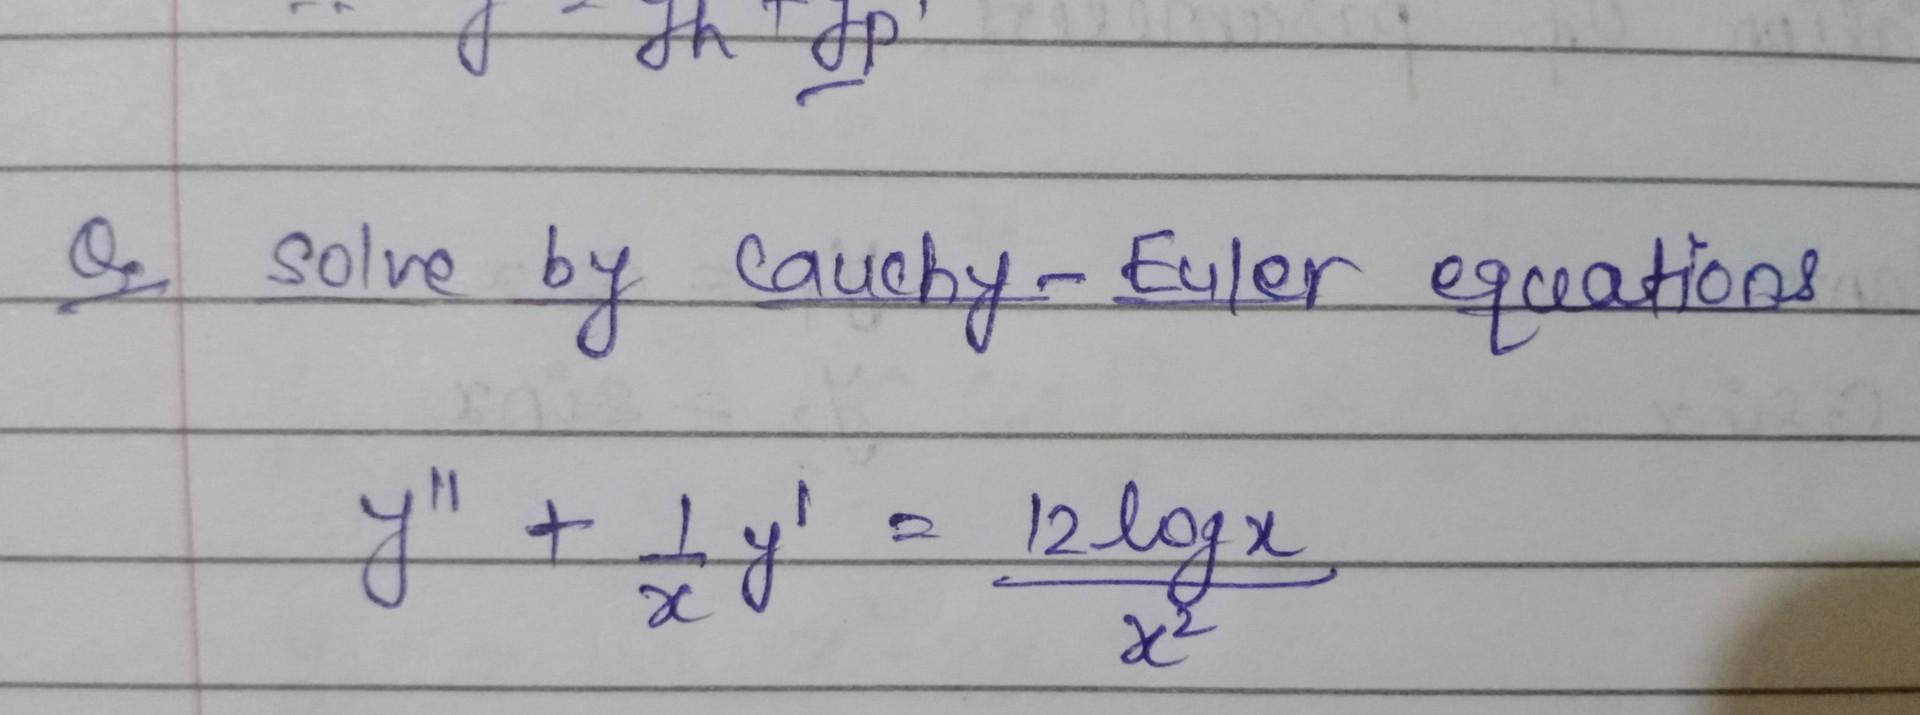 ∴ y = yh + yp
Q. solve by Cauchy-Euler equations
y'' + 1/x y' = 12 log x / x²